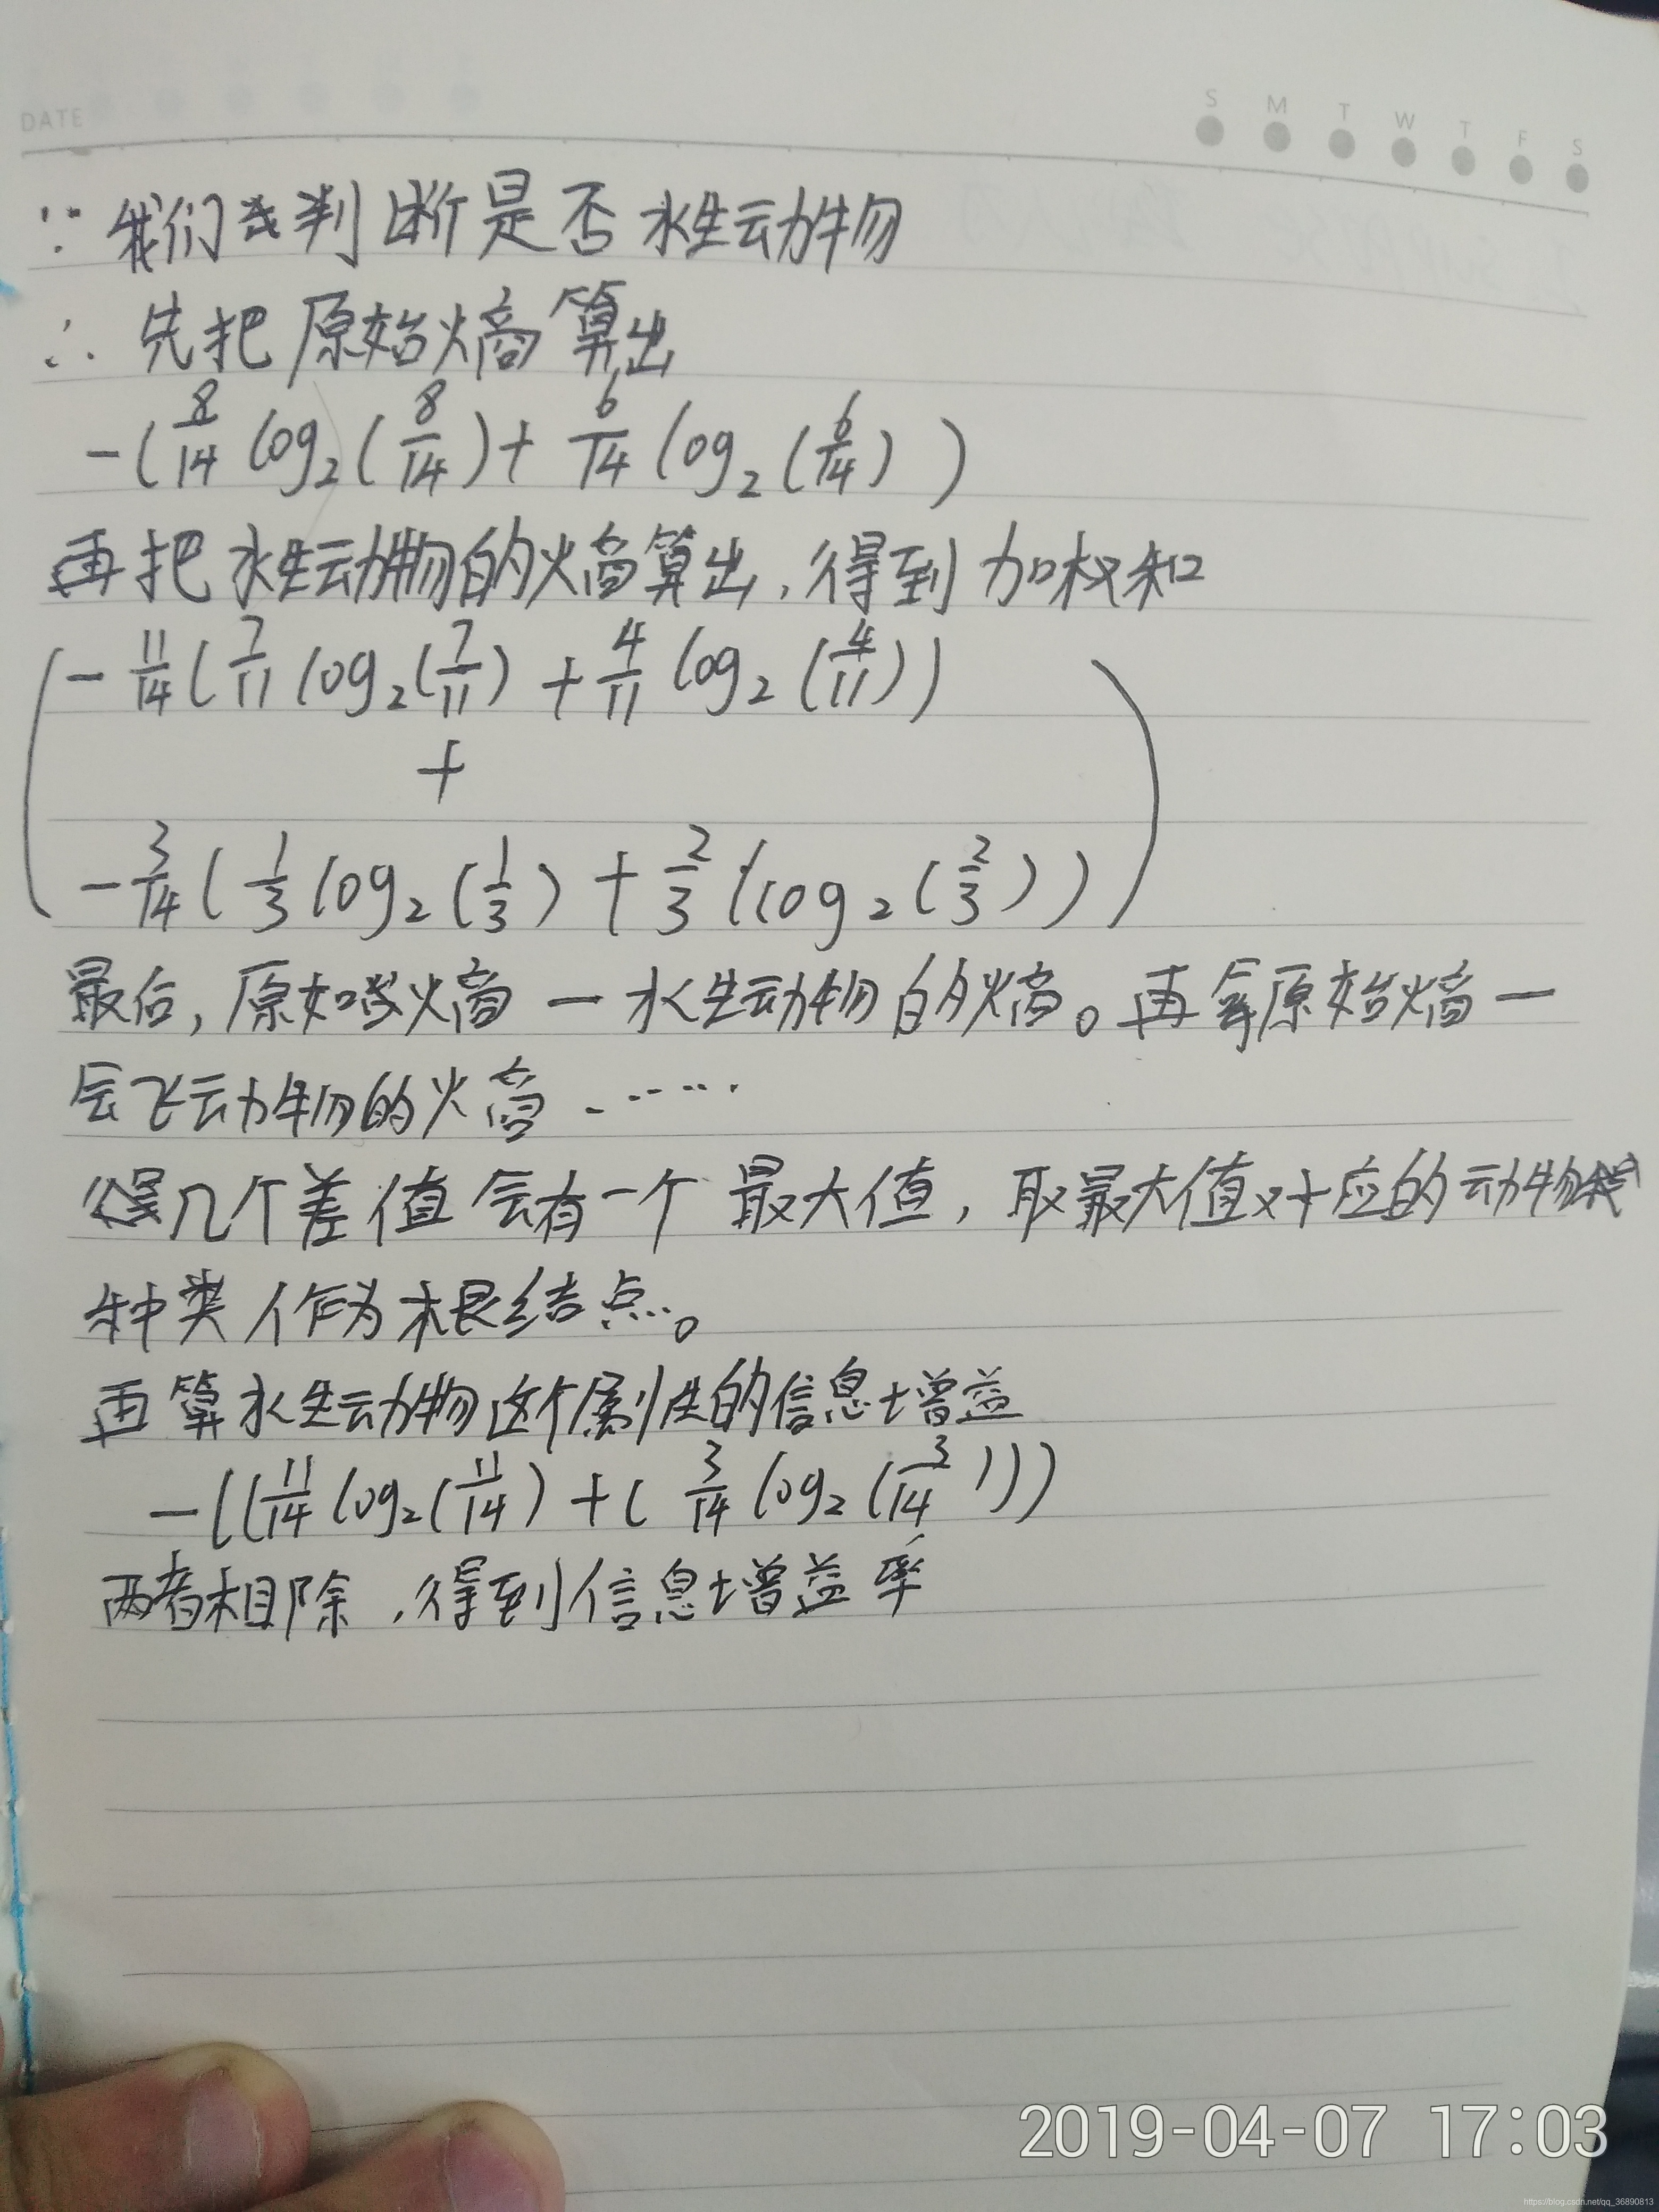 DATE
S M T W T F S
∵ 我们判断是否水生动物
∴ 先把原始熵算出
-(8/14 log₂(8/14)+ 6/14 log₂(6/14) )
再把水生动物的熵算出,得到加权和
(- 11/14(7/11 log₂(7/11) + 4/11 log₂(4/11))
+
- 3/14(1/3 log₂(1/3) + 2/3(log₂(2/3))) )
最后,原始熵 - 水生动物的熵。再拿原始熵 -
会飞动物的熵......
得几个差值会有一个最大值,取最大值对应的动物
种类作为根结点。
再算水生动物这个属性的信息增益
-((11/14 log₂(11/14) +( 3/14 log₂(3/14)))
两者相除,得到信息增益率
2019-04-07 17:03
https://blog.csdn.net/qq_36890813